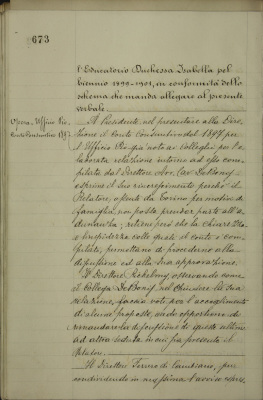 673
l'Educatorio Duchessa Isabella pel
biennio 1899-1901, in conformità dello
schema che manda allegare al presente
verbale.
Opera Uffizio Pio
Conto Consuntivo 1897
Il Presidente nel presentare alla Dire-
zione il Conto Consuntivo del 1897 per
l'Uffizio Pio già noto ai Colleghi per l'e-
laborata relazione intorno ad esso com-
pilata dal Direttore Avv. Cav.
esprime il suo rincrescimento perché il
Relatore, assente da Torino per motivi di
famiglia, non possa prender parte all'a-
dunanza; ritiene però che la chiarezza
e limpidezza colle quali il conto è com-
pilato, permettano di procedere alla
discussione ed alla sua approvazione.
Il Direttore osservando come
il Collega nel chiudere la sua
relazione, faccia voti per l'accoglimento
di alcune proposte, vede opportuno di
rimandare la discussione di queste ultime
ad altra seduta in cui sia presente il
Relatore.
Il Direttore Ferrero di Cambiano, pur
condividendo in massima l'avviso espres-